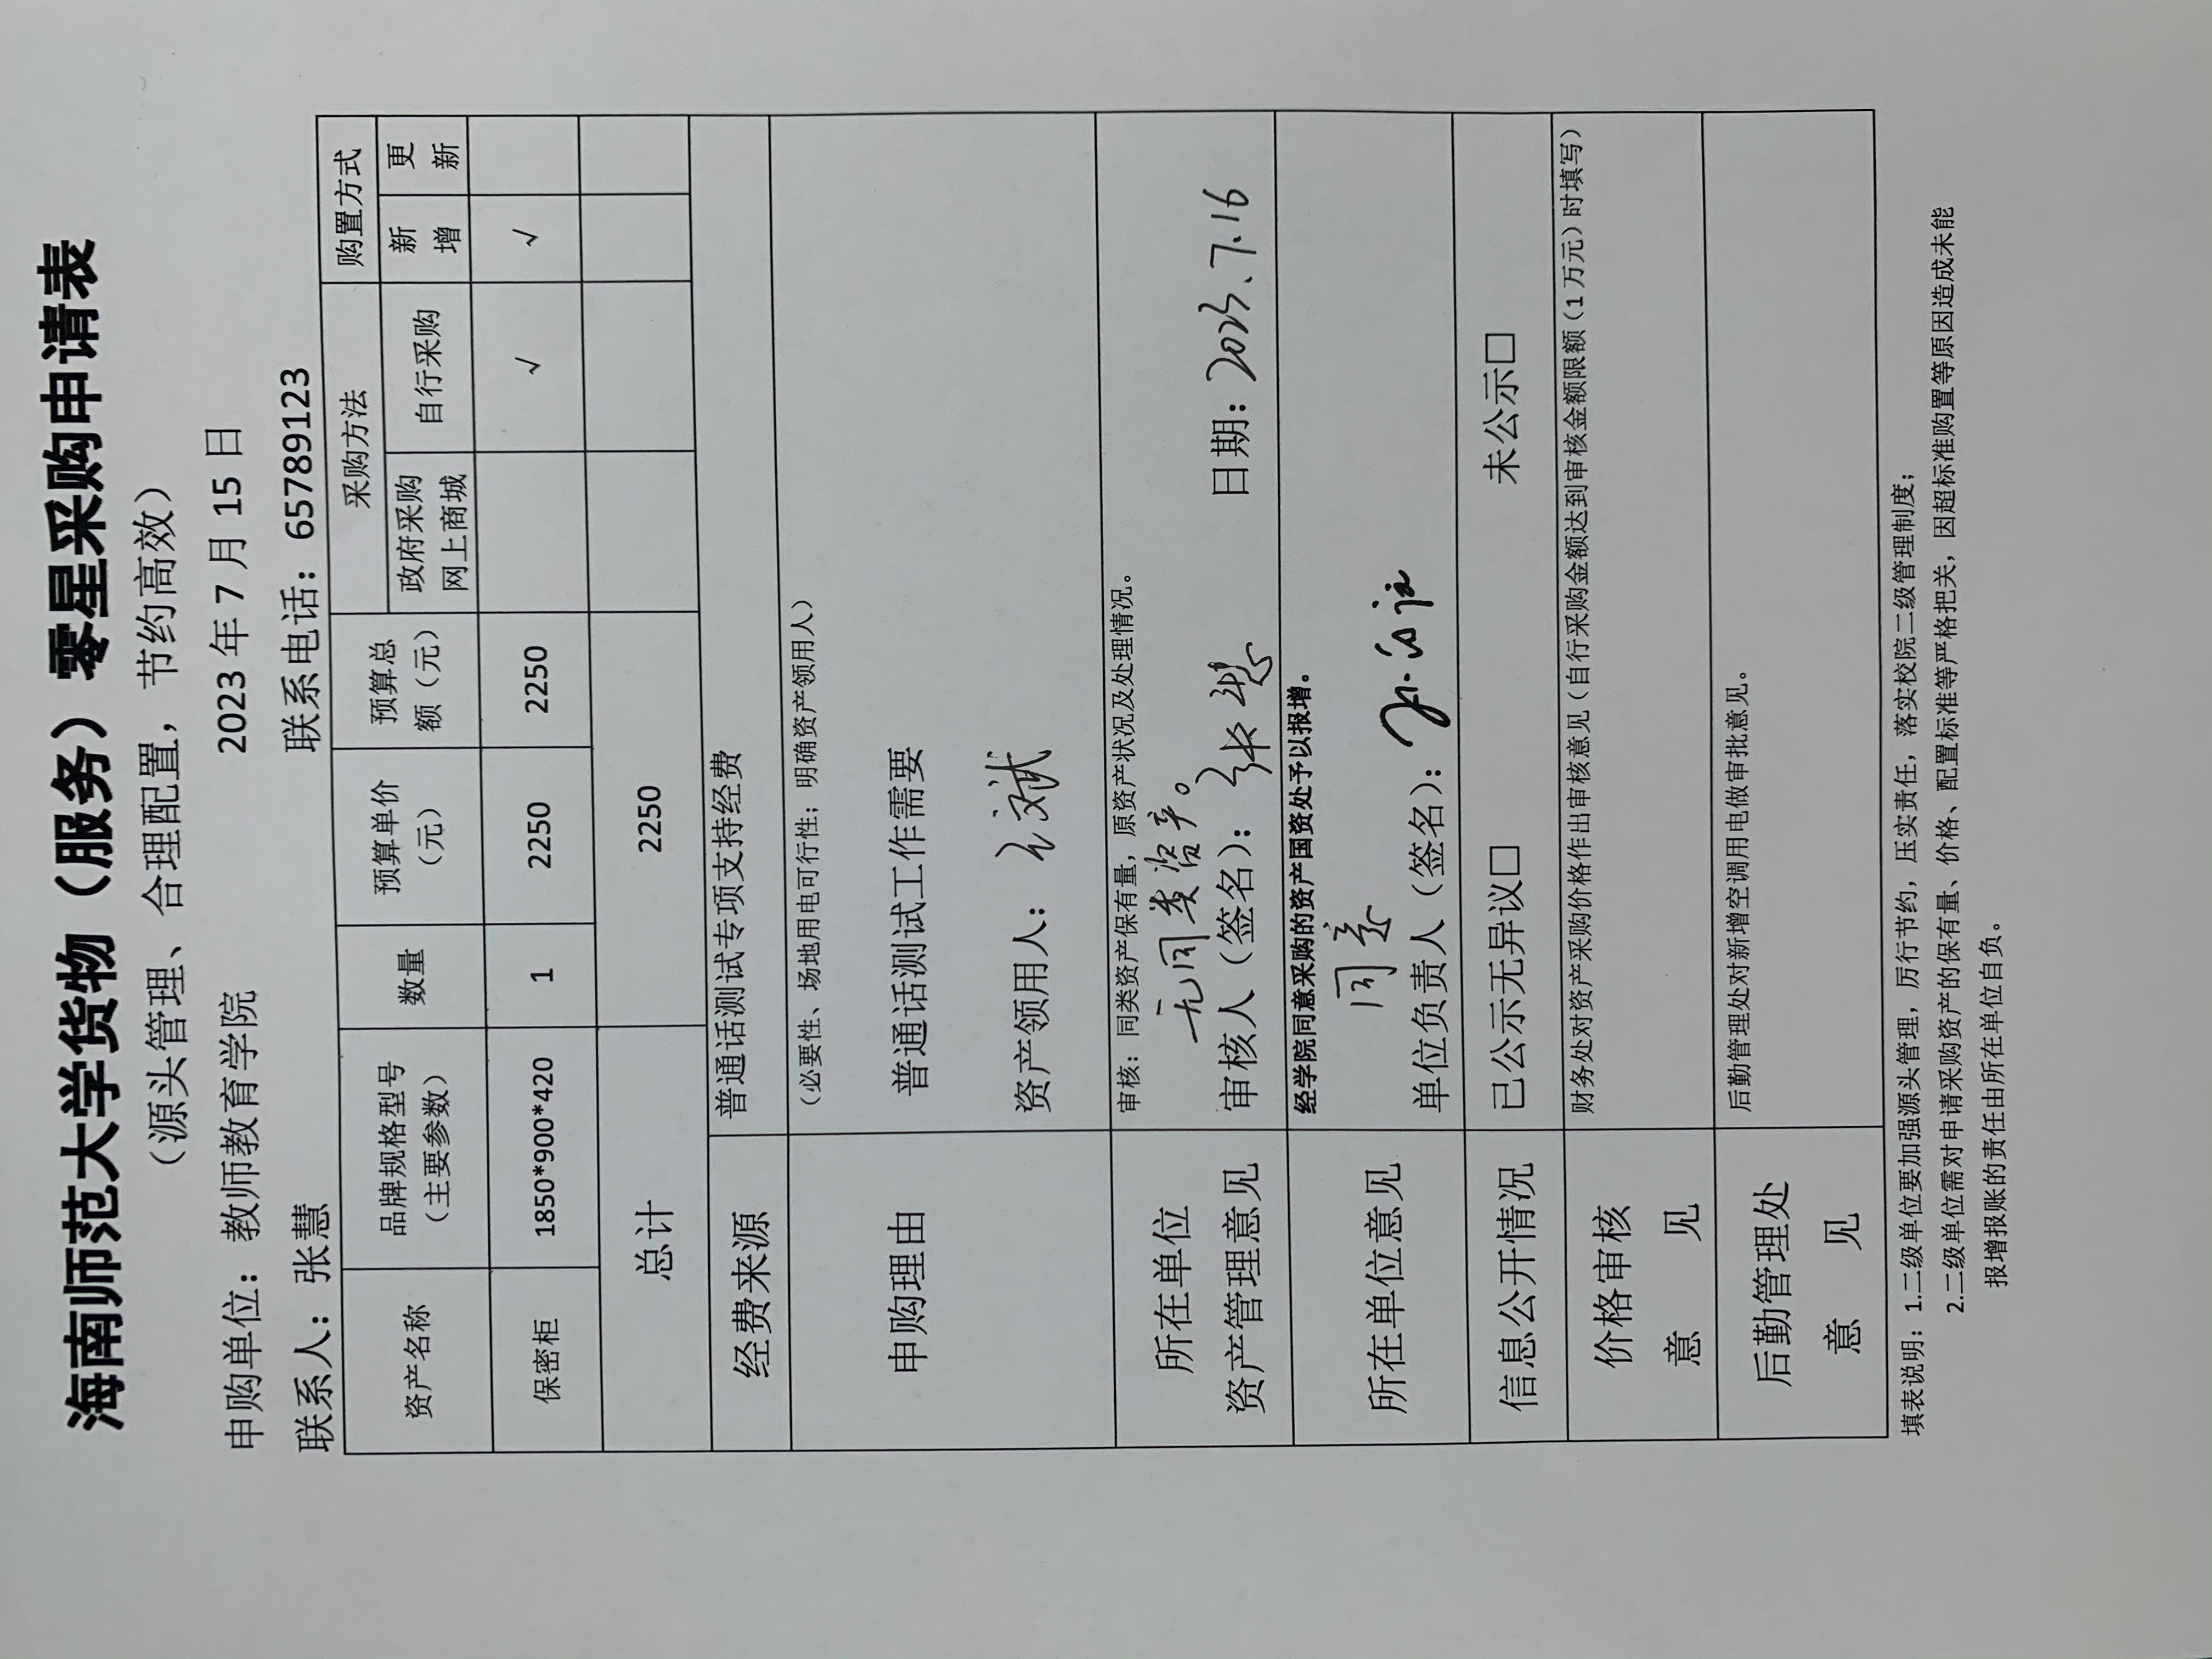 海南师范大学货物（服务）零星采购申请表
（源头管理、合理配置，节约高效）
申购单位：教师教育学院 2023 年 7 月 15 日
联系人：张慧 联系电话：65789123
资产名称 品牌规格型号（主要参数） 数量 预算单价（元） 预算总额（元） 采购方法 购置方式
政府采购网上商城 自行采购 新增 更新
保密柜 1850*900*420 1 2250 2250 √ √
总计 2250
经费来源 普通话测试专项支持经费
申购理由 （必要性、场地用电可行性；明确资产领用人）
普通话测试工作需要
资产领用人：
所在单位资产管理意见 审核：同类资产保有量，原资产状况及处理情况。
无同类资产。
审核人（签名）：张慧 日期：2023.7.16
所在单位意见 经学院同意采购的资产国资处予以报增。
同意
单位负责人（签名）：
信息公开情况 已公示无异议□ 未公示□
价格审核意见 财务处对资产采购价格作出审核意见（自行采购金额达到审核金额限额（1 万元）时填写）
后勤管理处意见 后勤管理处对新增空调用电做审批意见。
填表说明：1.二级单位要加强源头管理，厉行节约，压实责任，落实校院二级管理制度；
2.二级单位需对申请采购资产的保有量、价格、配置标准等严格把关，因超标准购置等原因造成未能
报增报账的责任由所在单位自负。